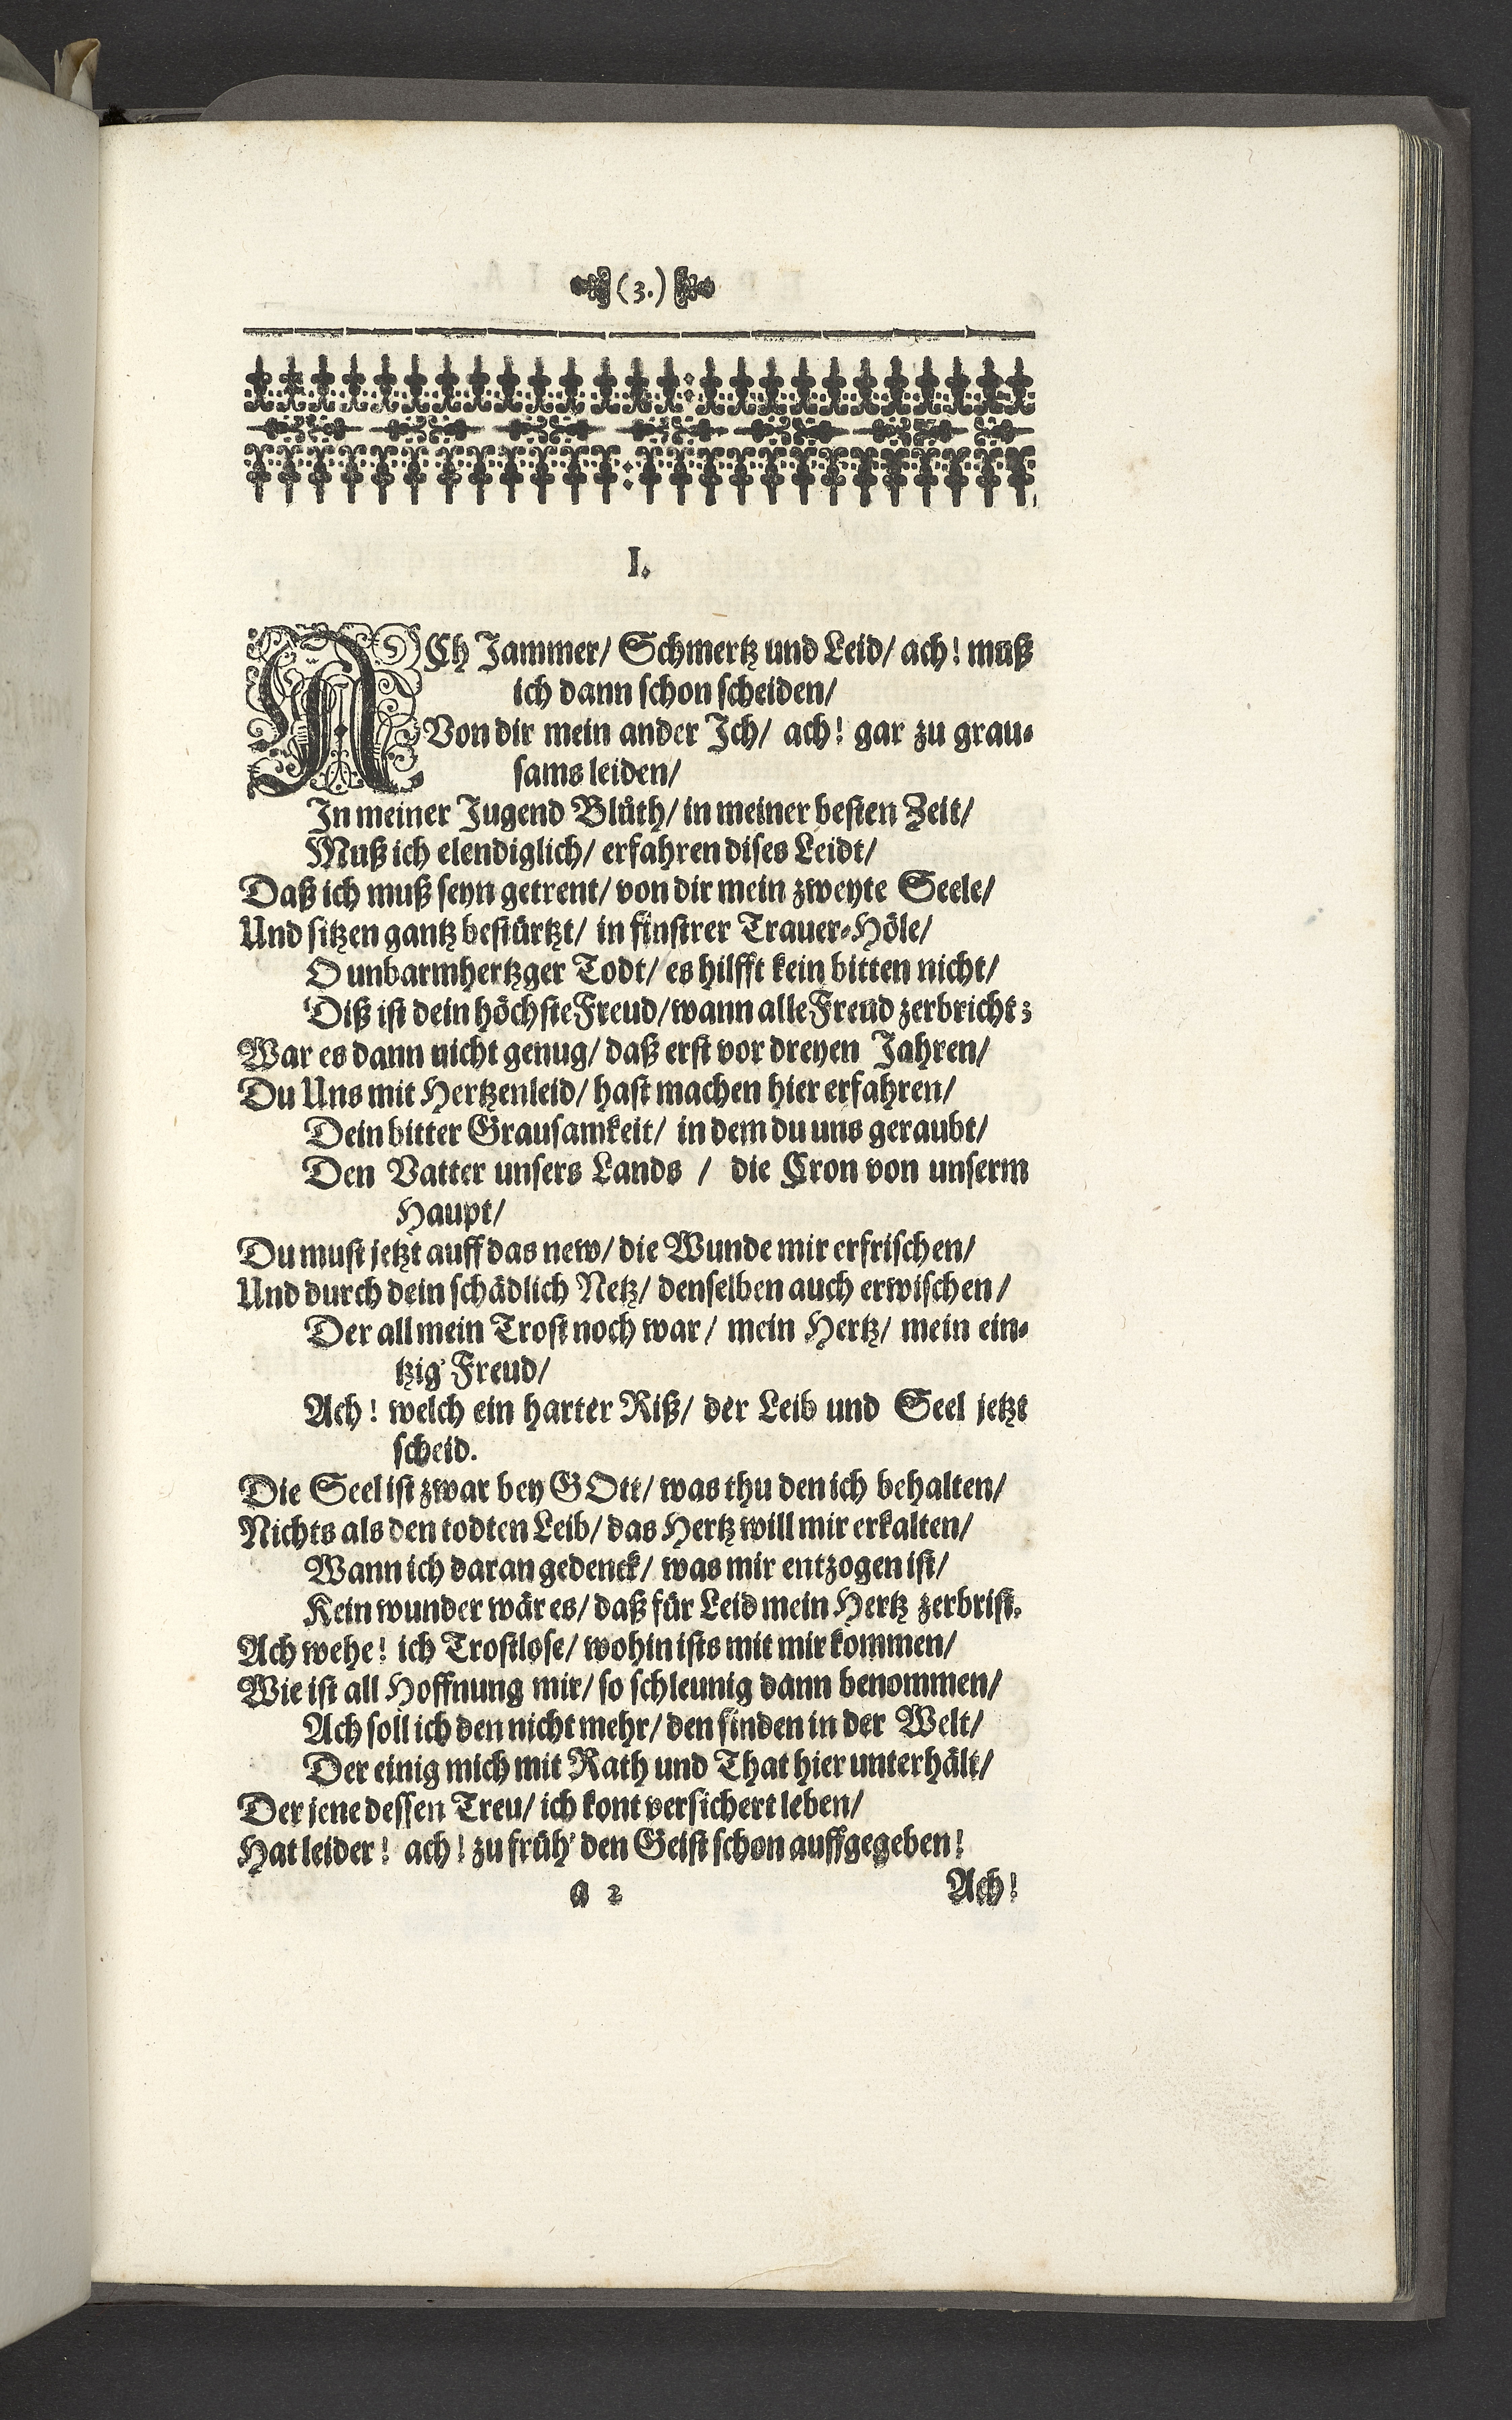 (3.)
I.
ACh Jammer/ Schmertz und Leid/ ach! muß
ich dann schon scheiden/
Von dir mein ander Ich/ ach! gar zu grau-
sams leiden/
In meiner Jugend Blüth/ in meiner besten Zeit/
Muß ich elendiglich/ erfahren dises Leidt/
Daß ich muß seyn getrent/ von dir mein zweyte Seele/
Und sitzen gantz bestürtzt/ in finstrer Trauer-Höle/
O unbarmhertzger Todt/ es hilfft kein bitten nicht/
Diß ist dein höchste Freud/ wann alle Freud zerbricht;
War es dann nicht genug/ daß erst vor dreyen Jahren/
Du Uns mit Hertzenleid/ hast machen hier erfahren/
Dein bitter Grausamkeit/ in dem du uns geraubt/
Den Vatter unsers Lands / die Cron von unserm
Haupt/
Du must jetzt auff das new/ die Wunde mir erfrischen/
Und durch dein schädlich Netz/ denselben auch erwischen/
Der all mein Trost noch war/ mein Hertz/ mein ein-
tzig' Freud/
Ach! welch ein harter Riß/ der Leib und Seel jetzt
scheid.
Die Seel ist zwar bey GOtt/ was thu den ich behalten/
Nichts als den todten Leib/ das Hertz will mir erkalten/
Wann ich daran gedenck/ was mir entzogen ist/
Kein wunder wär es/ daß für Leid mein Hertz zerbrist.
Ach wehe! ich Trostlose/ wohin ists mit mir kommen/
Wie ist all Hoffnung mir/ so schleunig dann benommen/
Ach soll ich den nicht mehr/ den finden in der Welt/
Der einig mich mit Rath und That hier unterhält/
Der jene dessen Treu/ ich kont versichert leben/
Hat leider! ach! zu früh' den Geist schon auffgegeben!
a 2 Ach!